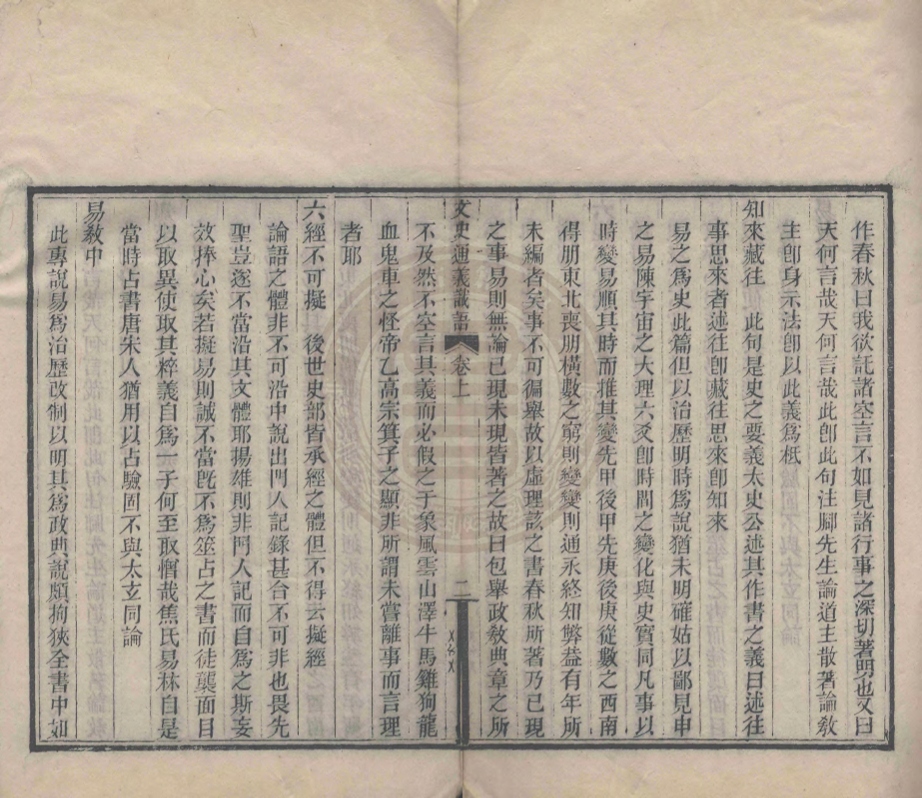 作春秋曰我欲託諸空言不如見諸行事之深切著明也又曰
天何言哉天何言哉此卽此句注腳先生論道主散著論敎
主卽身示法卽以此義爲柢
知來藏往　此句是史之要義太史公述其作書之義曰述往
事思來者述往卽藏往思來卽知來
易之爲史此篇但以治歷明時爲說猶未明確姑以鄙見申
之易陳宇宙之大理六爻卽時間之變化與史實同凡事以
時變易順其時而推其變先甲後甲先庚後庚從數之西南
得朋東北喪朋橫數之窮則變變則通永終知弊葢有年所
未編者矣事不可徧舉故以虛理該之書春秋所著乃已現
之事易則無論已現未現皆著之故曰包舉政敎典章之所
文史通義識語　卷上　二
不及然不空言其義而必假之于象風雲山澤牛馬雞狗龍
血鬼車之怪帝乙高宗箕子之顯非所謂未嘗離事而言理
者耶
六經不可擬　後世史部皆承經之體但不得云擬經
論語之體非不可沿中說出門人記錄甚合不可非也畏先
聖豈遂不當沿其文體耶揚雄則非門人記而自爲之斯妄
效捧心矣若擬易則誠不當旣不爲筮占之書而徒襲面目
以取異使取其粹義自爲一子何至取憎哉焦氏易林自是
當時占書唐宋人猶用以占驗固不與太玄同論
易敎中
此專說易爲治歷改制以明其爲政典說頗拘狹全書中如